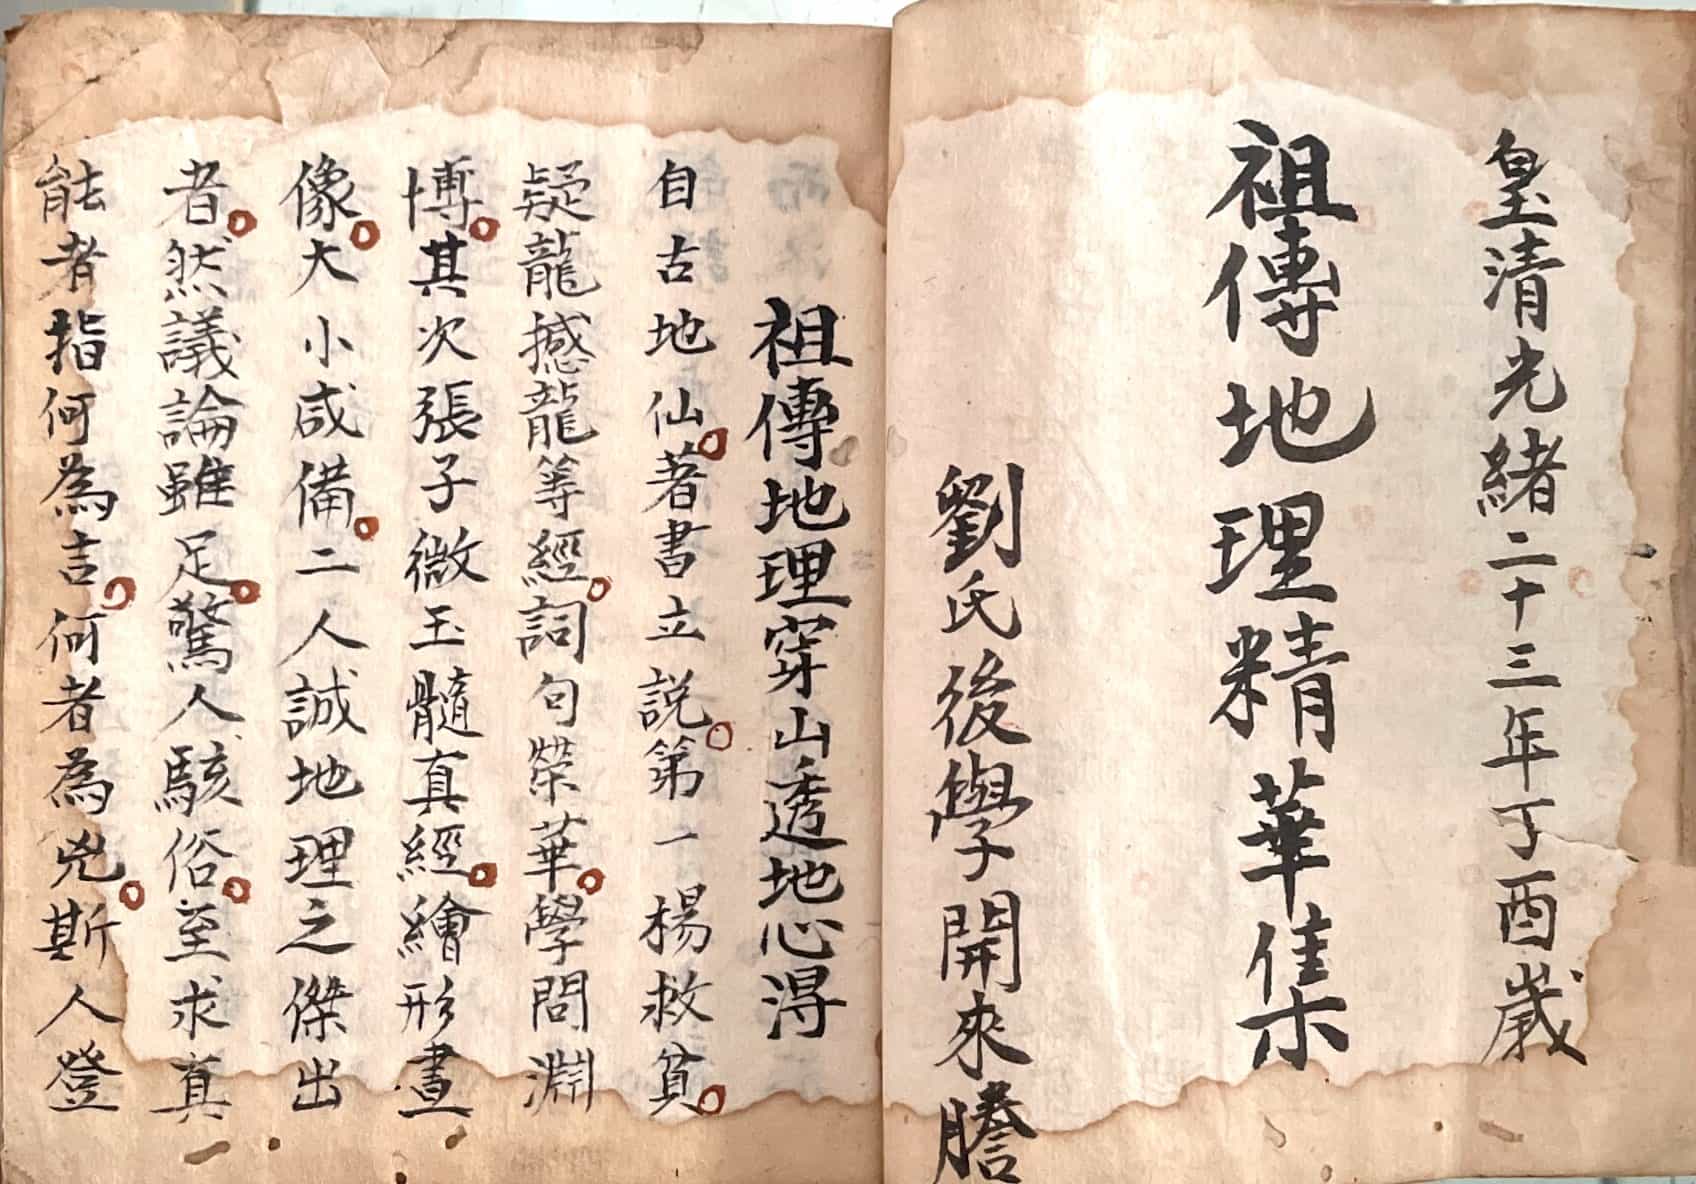 皇清光緒二十三年丁酉歲
祖傳地理精華集
劉氏後學開來謄
祖傳地理穿山透地心得
自古地仙著書立說第一楊救貧
疑龍撼龍等經詞句榮華學問淵
博其次張子微玉髓真經繪形畫
像大小咸備二人誠地理之傑出
者然議論雖足驚人駭俗至求真
能者指何為言何者為兇斯人登